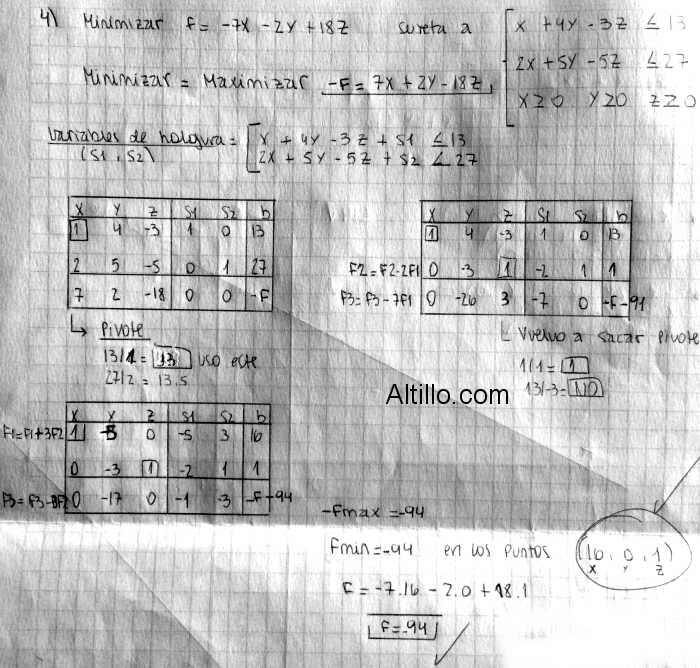 4) Minimizar F = -7X - 2Y + 18Z sujeta a
X + 4Y - 3Z ≤ 13
2X + 5Y - 5Z ≤ 27
X≥0 Y≥0 Z≥0
Minimizar = Maximizar -F = 7X + 2Y - 18Z
Variables de holgura =
(S1, S2)
X + 4Y - 3Z + S1 ≤ 13
2X + 5Y - 5Z + S2 ≤ 27
X Y Z S1 S2 b
1 4 -3 1 0 13
2 5 -5 0 1 27
7 2 -18 0 0 -F
↳ Pivote
13/1 = 13 uso este
27/2 = 13.5
X Y Z S1 S2 b
1 4 -3 1 0 13
F2 = F2-2F1 0 -3 1 -2 1 1
F3 = F3-7F1 0 -26 3 -7 0 -F-91
Vuelvo a sacar pivote
1/1 = 1
13/-3 = NO
Altillo.com
X Y Z S1 S2 b
F1=F1+3F2 1 -5 0 -5 3 16
0 -3 1 -2 1 1
F3 = F3-3F2 0 -17 0 -1 -3 -F-94
-Fmax = -94
Fmin = -94 en los puntos (16, 0, 1)
X Y Z
F = -7.16 - 2.0 + 18.1
F = -94